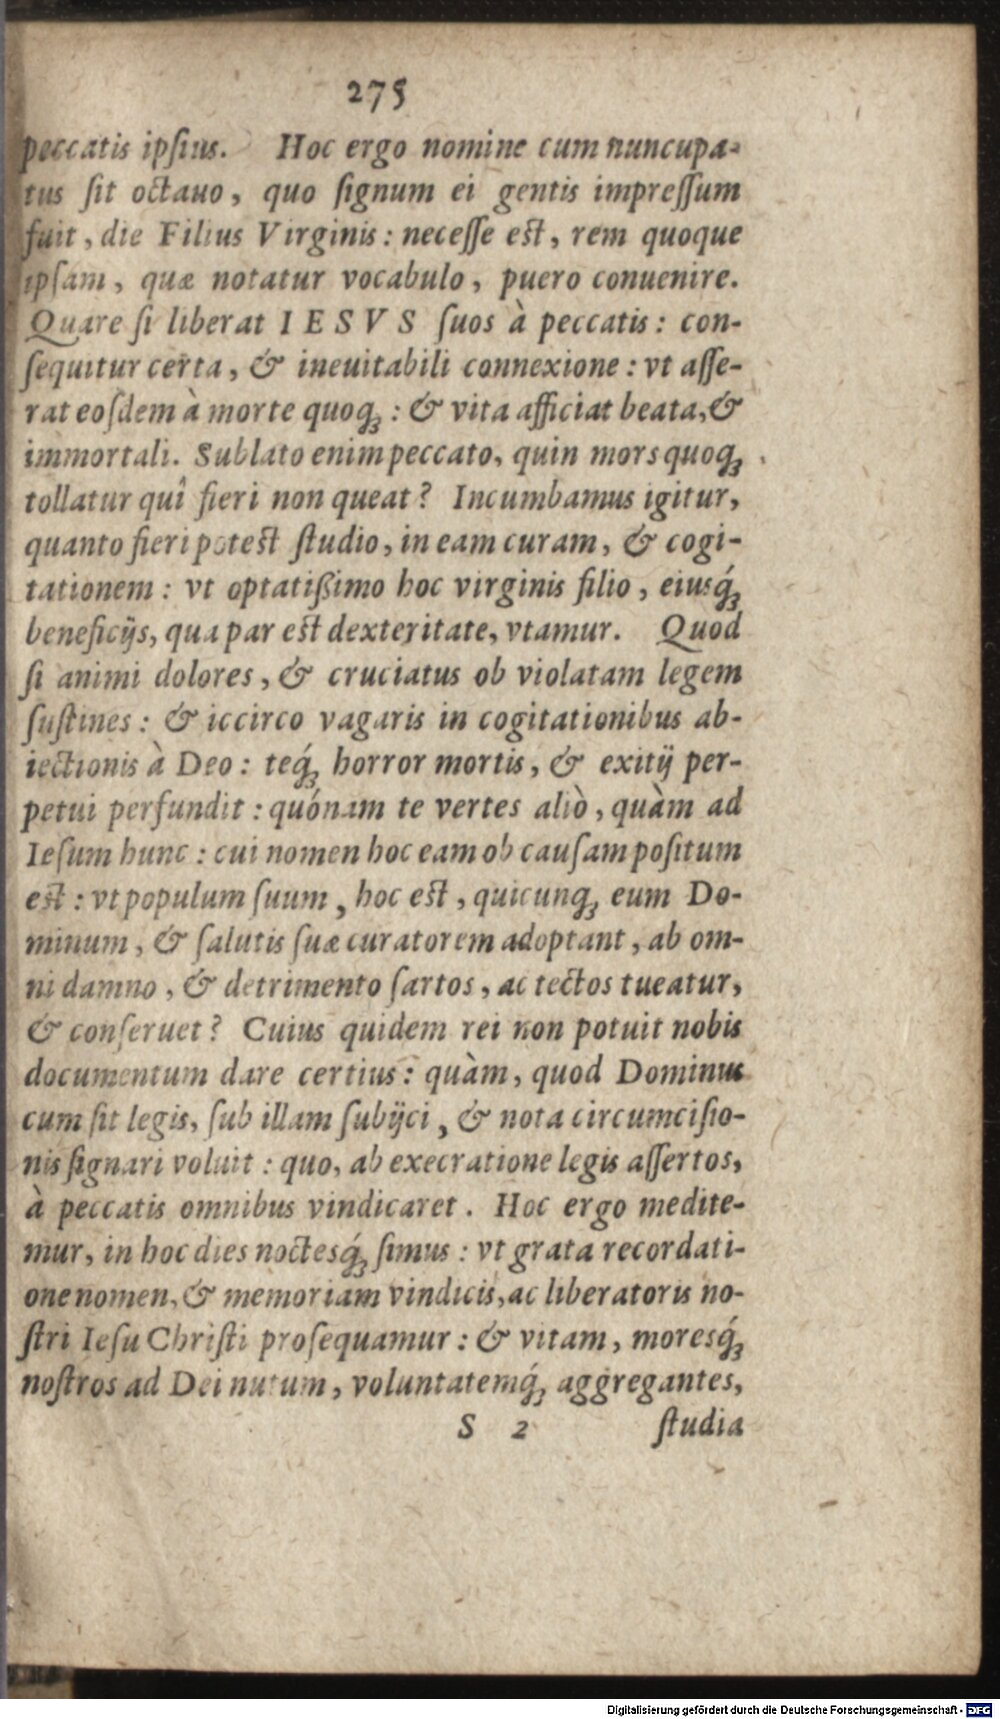 275
peccatis ipſius. Hoc ergo nomine cum nuncupa-
tus ſit octauo, quo ſignum ei gentis impreſſum
fuit, die Filius Virginis: neceſſe eſt, rem quoque
ipſam, quæ notatur vocabulo, puero conuenire.
Quare ſi liberat IESVS ſuos à peccatis: con-
ſequitur certa, & ineuitabili connexione: vt aſſe-
rat eoſdem à morte quoq;: & vita afficiat beata, &
immortali. Sublato enim peccato, quin mors quoq;
tollatur quî fieri non queat? Incumbamus igitur,
quanto fieri poteſt ſtudio, in eam curam, & cogi-
tationem: vt optatiſſimo hoc virginis filio, eiusq́;
beneficijs, qua par eſt dexteritate, vtamur. Quod
ſi animi dolores, & cruciatus ob violatam legem
ſuſtines: & iccirco vagaris in cogitationibus ab-
iectionis à Deo: teq́; horror mortis, & exitij per-
petui perfundit: quónam te vertes aliò, quàm ad
Ieſum hunc: cui nomen hoc eam ob cauſam poſitum
eſt: vt populum ſuum, hoc eſt, quicunq; eum Do-
minum, & ſalutis ſuæ curatorem adoptant, ab om-
ni damno, & detrimento ſartos, ac tectos tueatur,
& conſeruet? Cuius quidem rei non potuit nobis
documentum dare certius: quàm, quod Dominus
cum ſit legis, ſub illam ſubijci, & nota circumciſio-
nis ſignari voluit: quo, ab execratione legis aſſertos,
à peccatis omnibus vindicaret. Hoc ergo medite-
mur, in hoc dies noctesq́; ſimus: vt grata recordati-
one nomen, & memoriam vindicis, ac liberatoris no-
ſtri Ieſu Chriſti proſequamur: & vitam, moresq́;
noſtros ad Dei nutum, voluntatemq́; aggregantes,
S 2 ſtudia
Digitalisierung gefördert durch die Deutsche Forschungsgemeinschaft - DFG